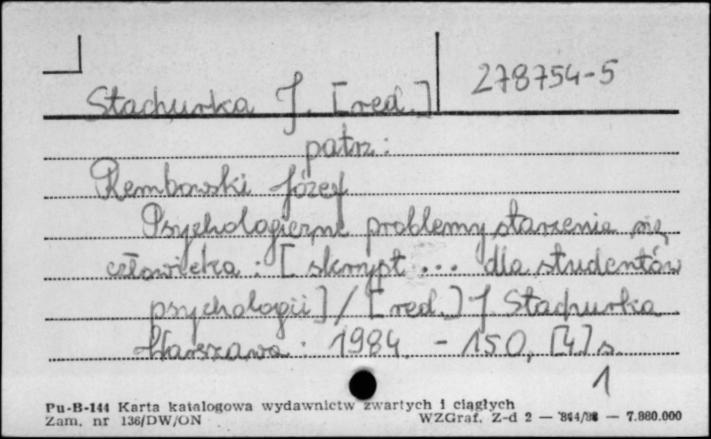 278754-5
Stachurka J. [red.]
patrz:
Rembowski Józef
Psychologiczne problemy starzenia się
człowieka : [skrypt ... dla studentów
psychologii] / [red.] J. Stachurka
Warszawa : 1984. - 150, [4] s.
1
Pu-B-144 Karta katalogowa wydawnictw zwartych i ciągłych
Zam. nr 136/DW/ON WZGraf. Z-d 2 — — 7.880.000